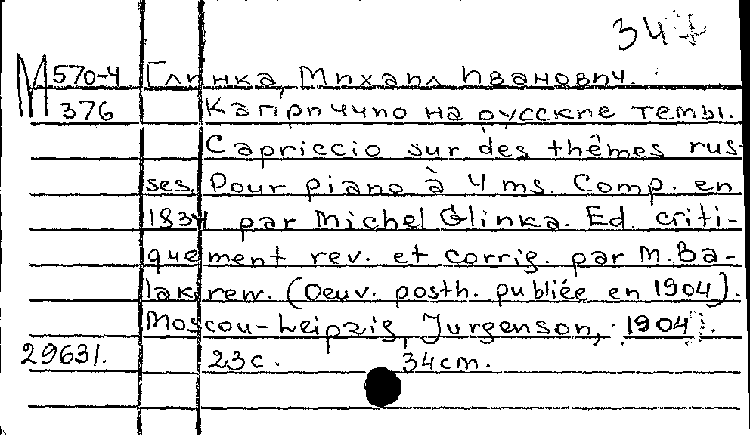 347
М 570-4 Глинка, Михаил Иванович.
376 Каприччио на русские темы.
Capriccio sur des thêmes rus-
ses. Pour piano à 4 ms. Comp. en
1834 par Michel Glinka. Ed. criti-
quement rev. et corrig. par M. Ba-
lakirew. (Oeuv. posth. publiée en 1904).
Moscou-Leipzig, Jurgenson, 1904.
29631. 23 c. 34 cm.